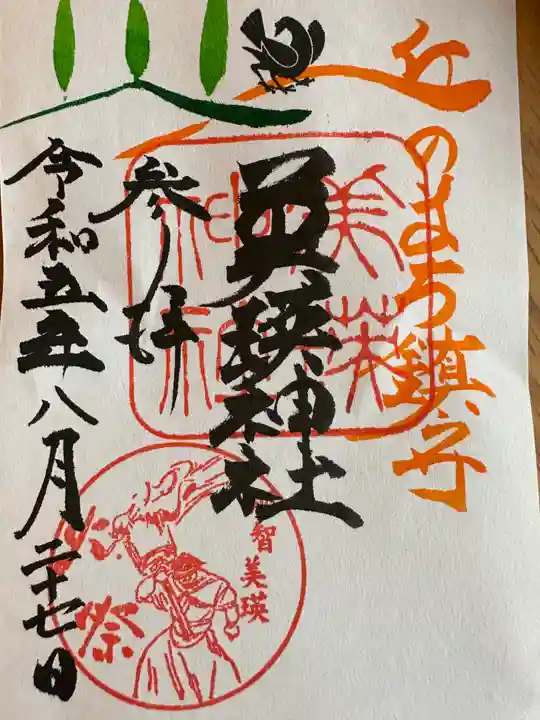 丘のまち鎮守
美瑛神社
参拝
令和五年八月二十七日
智美瑛
火祭